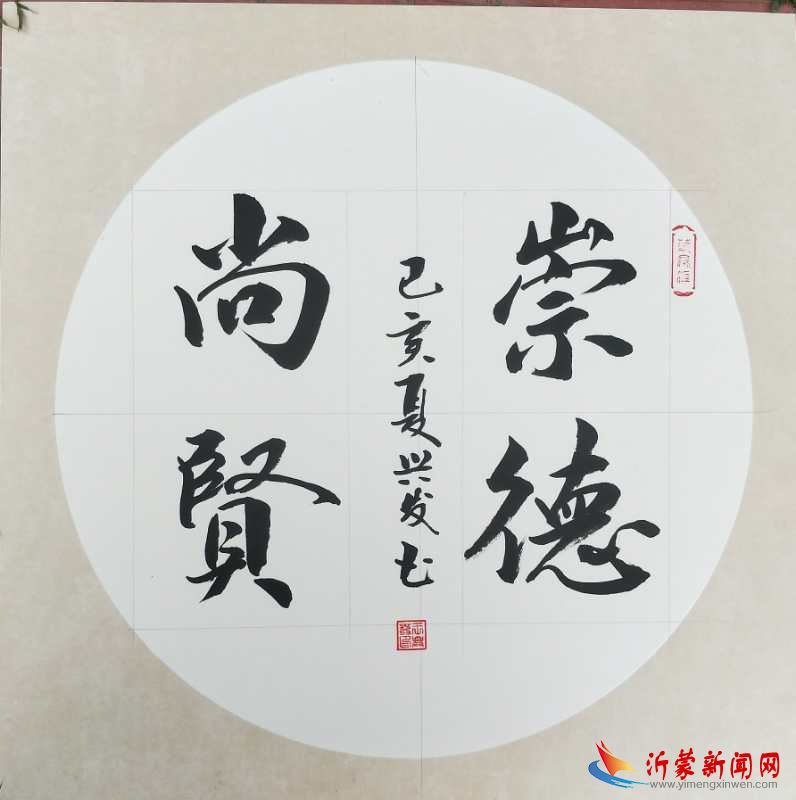 崇德
尚賢
己亥夏兴发书
沂蒙新闻网
www.yimengxinwen.com